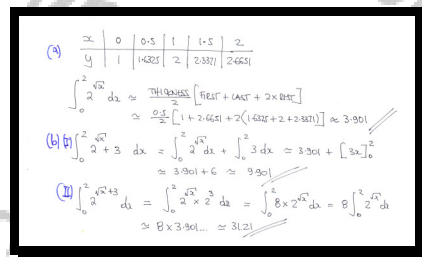 (a)
x 0 0.5 1 1.5 2
y 1 1.6325 2 2.3371 2.6651
∫₀² 2^√x dx ≈ THICKNESS/2 [FIRST + LAST + 2×REST]
≈ 0.5/2 [1 + 2.6651 + 2(1.6325 + 2 + 2.3371)] ≈ 3.901
(b)(I) ∫₀² 2^√x + 3 dx = ∫₀² 2^√x dx + ∫₀² 3 dx ≈ 3.901 + [3x]₀²
≈ 3.901 + 6 ≈ 9.901
(II) ∫₀² 2^(√x+3) dx = ∫₀² 2^√x × 2³ dx = ∫₀² 8 × 2^√x dx = 8∫₀² 2^√x dx
≈ 8 × 3.901... ≈ 31.21